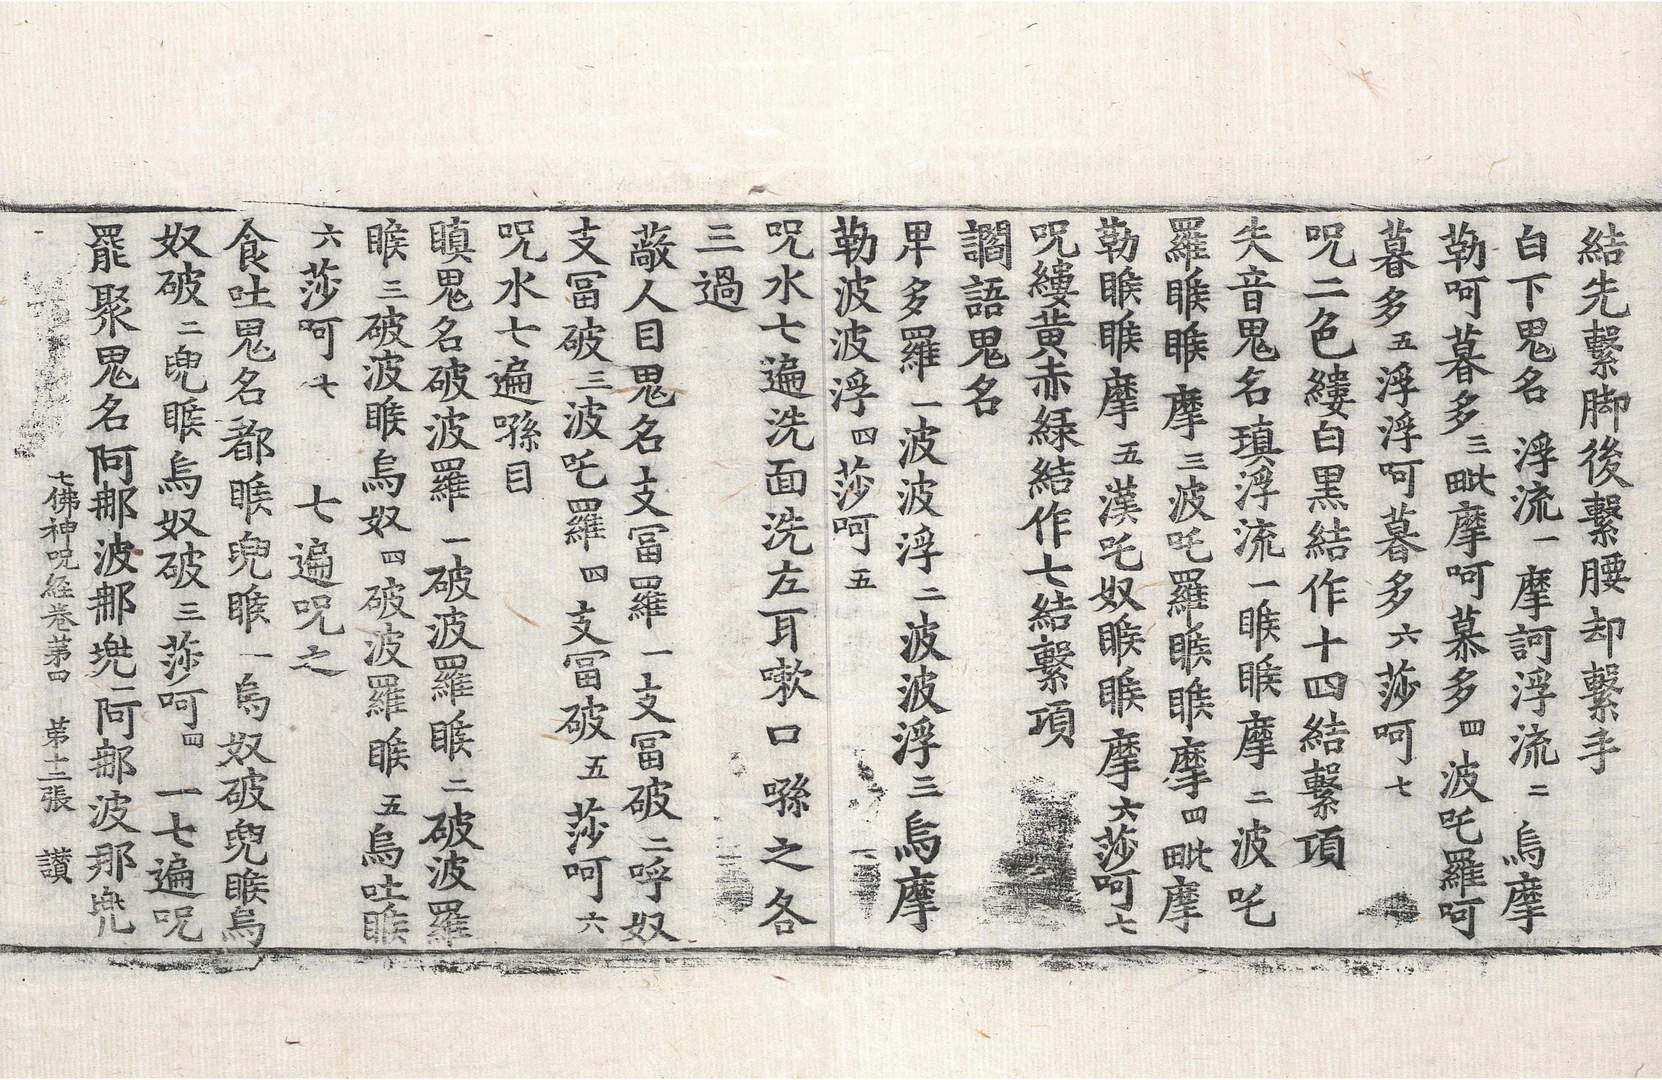 結先繫脚後繫腰却繫手
白下鬼名　浮流一摩訶浮流二　烏摩
勒呵暮多三毗摩呵慕多四波吒羅呵
暮多五浮浮呵暮多六莎呵七
呪二色縷白黑結作十四結繫項
失音鬼名瑱浮流一睺睺摩二波吒
羅睺睺摩三波吒羅睺睺摩四毗摩
勒睺睺摩五漢吒奴睺睺摩六莎呵七
呪縷黃赤綠結作七結繫項
讕語鬼名
畀多羅一波波浮二波波浮三烏摩
勒波波浮四莎呵五
呪水七遍洗面洗左耳嗽口㗭之各
三過
蔽人目鬼名支冨羅一支冨破二呼奴
支冨破三波吒羅四支冨破五莎呵六
呪水七遍㗭目
瞋鬼名破波羅一破波羅睺二破波羅
睺三破波睺烏奴四破波羅睺五烏吐睺
六莎呵七　　七遍呪之
食吐鬼名都睺兜睺一烏奴破兜睺烏
奴破二兜睺烏奴破三莎呵四　一七遍呪
罷聚鬼名阿那波那兜一阿那波那兜
七佛神呪経卷第四　第十二張　讃